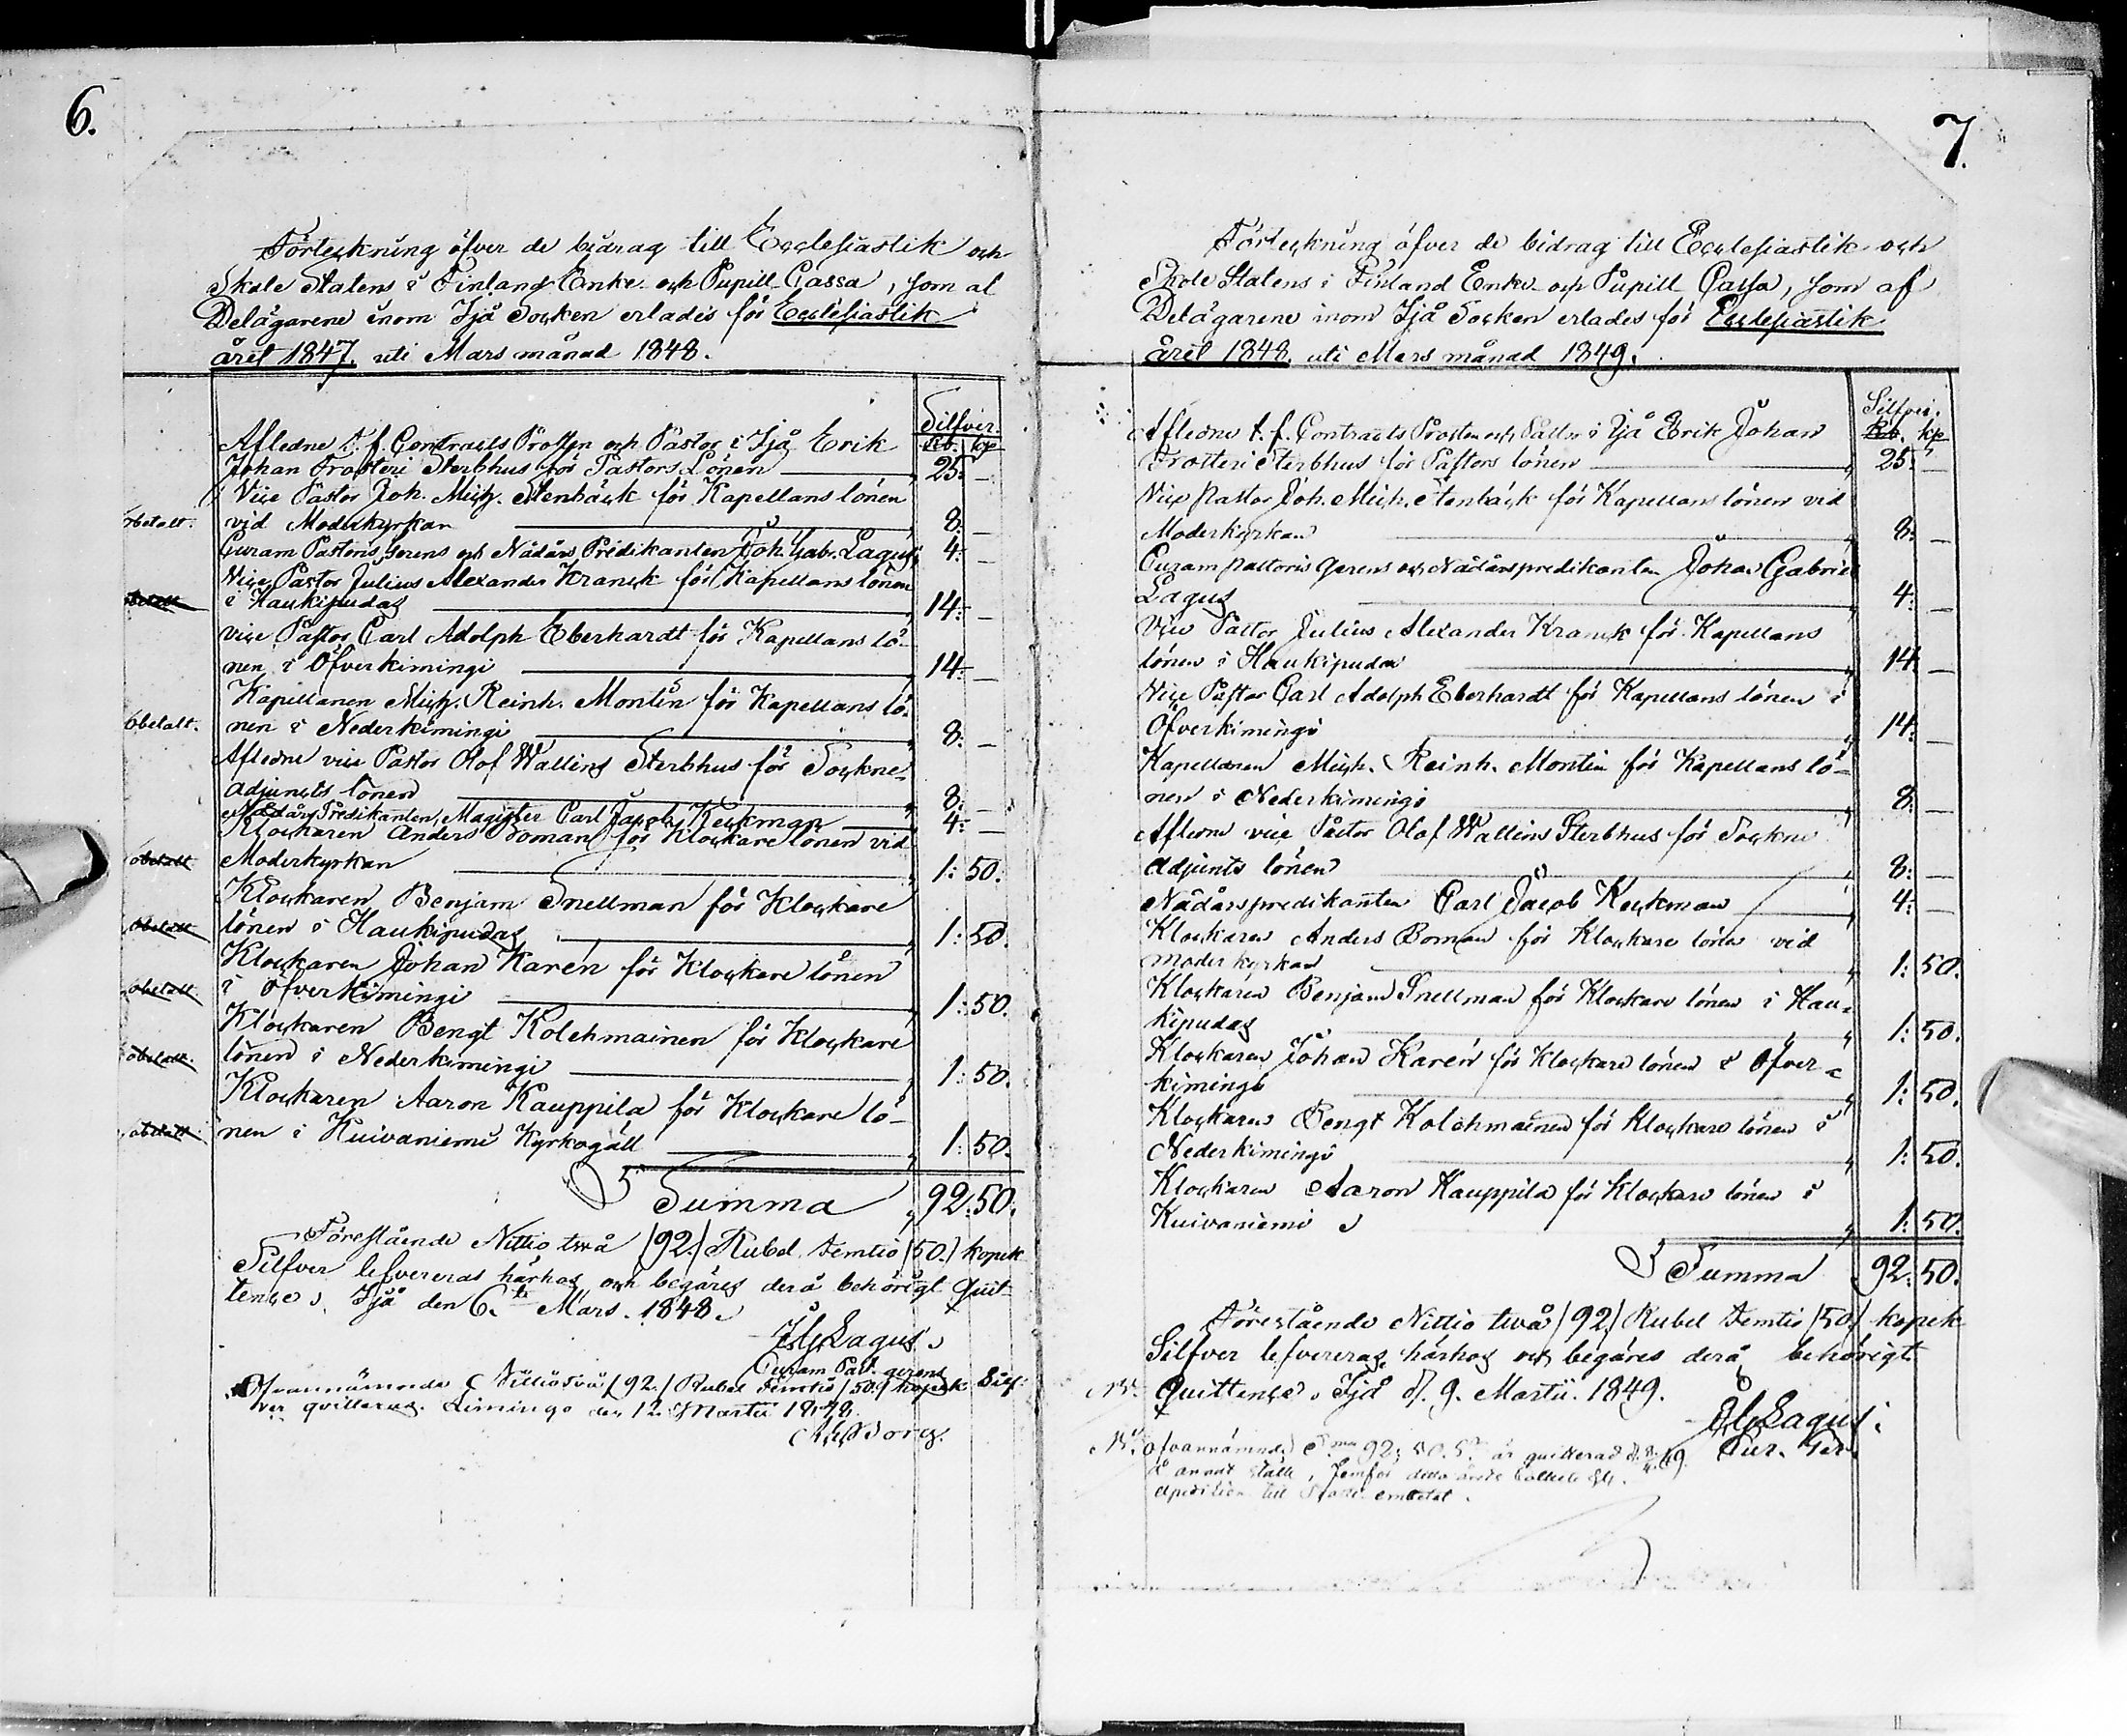 6.
Förteckning öfver de bidrag till Ecclesiastik och
Skole Statens i Finland Enke- och Pupill-Cassa, som af
Delägarene inom Ijå Socken erlades för Ecclesiastik
året 1847. uti Mars månad 1848.
Silfver.
Rub. kp
Afledne t. f. Contracts Prosten och Pastor i Ijå Erik
Johan Frosteri Sterbhus för Pastors Lönen 25: —
Vice Pastor Joh. Mich. Stenbäck för Kapellans lönen
obetalt. vid Moderkyrkan 8: —
Curam Pastoris gerens och Nådårs Predikanten Joh. Gab. Lagus 4: —
Vice Pastor Julius Alexander Kranck för Kapellans lönen
obetalt i Haukipudas 14: —
vice Pastor Carl Adolph Eberhardt för Kapellans lö-
nen i Öfverkimingi 14: —
Kapellanen Mich. Reinh. Montin för Kapellans lö-
obetalt. nen i Nederkimingi 8: —
Afledne vice Pastor Olof Wallins Sterbhus för Sockne-
adjuncts lönen 8: —
Nådårs Predikanten, Magister Carl Jacob Keckman 4: —
Klockaren Anders Boman för Klockare lönen vid
obetalt Moderkyrkan 1: 50.
Klockaren Benjam Snellman för Klockare
obetalt lönen i Haukipudas 1: 50.
Klockaren Johan Karén för Klockare lönen
obetalt i Öfverkimingi 1: 50.
Klockaren Bengt Kolehmainen för Klockare
obetalt. lönen i Nederkimingi 1: 50.
Klockaren Aaron Kauppila för Klockare lö-
obetalt nen i Kuivaniemi Kyrkogäll 1: 50.
Summa 92: 50.
Förestående Nittio två /92./ Rubel femtio /50./ kopek
Silfver lefvereras härhos och begäres derå behörigt Quit-
tence. Ijå den 6.te Mars. 1848.
J. G. Lagus.
Curam Past. gerens
Ofvannämnde Nittiotvå /92./ Rubel Femtio /50./ kopek Silf-
ver qvitteras. Limingo den 12 Martii 1848.
Borg.
7.
Förteckning öfver de bidrag till Ecclesiastik och
Skole Statens i Finland Enke- och Pupill Cassa, som af
Delägarene inom Ijå Socken erlades för Ecclesiastik
året 1848. uti Mars månad 1849.
Silfver.
Rub. kp
Afledne t. f. Contracts Prosten och Pastor i Ijå Erik Johan
Frosteri Sterbhus för Pastors lönen 25: —
Vice Pastor Joh. Mich. Stenbäck för Kapellans lönen vid
Moderkyrkan 8: —
Curam pastoris gerens och Nådårspredikanten Johan Gabriel
Lagus 4: —
Vice Pastor Julius Alexander Kranck för Kapellans
lönen i Haukipudas 14: —
Vice Pastor Carl Adolph Eberhardt för Kapellans lönen i
Öfverkimingi 14: —
Kapellanen Mich. Reinh. Montin för Kapellans lö-
nen i Nederkimingi 8: —
Afledne vice Pastor Olof Wallins Sterbhus för Sockne
adjuncts lönen 8: —
Nådårspredikanten Carl Jacob Keckman 4: —
Klockaren Anders Boman för Klockare lönen vid
moderkyrkan 1: 50.
Klockaren Benjam Snellman för Klockare lönen i Hau-
kipudas 1: 50.
Klockaren Johan Karén för Klockare lönen i Öfver-
kimingi 1: 50.
Klockaren Bengt Kolehmainen för Klockare lönen i
Nederkimingi 1: 50.
Klockaren Aaron Kauppila för Klockare lönen i
Kuivaniemi 1: 50.
Summa 92: 50.
Förestående Nittio två /92./ Rubel femtio /50./ kopek
Silfver lefvereras härhos och begäres derå behörigt
Quittence. Ijå d. 9. Martii. 1849.
J. G. Lagus.
Cur. Ger.
ofvannämnde 92: 50. är quitterad
å annat ställe, Jemför detta årets